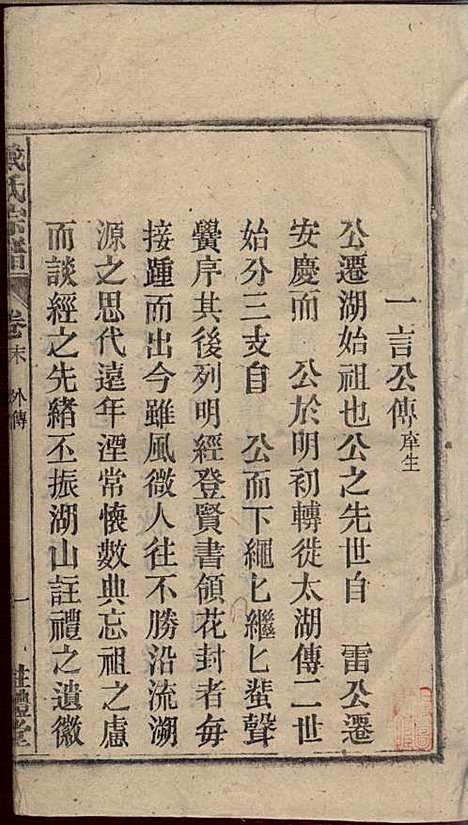 一言公傳庠生
公遷湖始祖也公之先世自 雷公遷
安慶而 公於明初轉徙太湖傳二世
始分三支自 公而下繩匕繼匕蜚聲
黌序其後列明經登賢書領花封者每
接踵而出今雖風微人往不勝沿流溯
源之思代遠年湮常懷數典忘祖之慮
而談經之先緒丕振湖山註禮之遺徽
戴氏宗譜 卷末 外傳 一 註禮堂